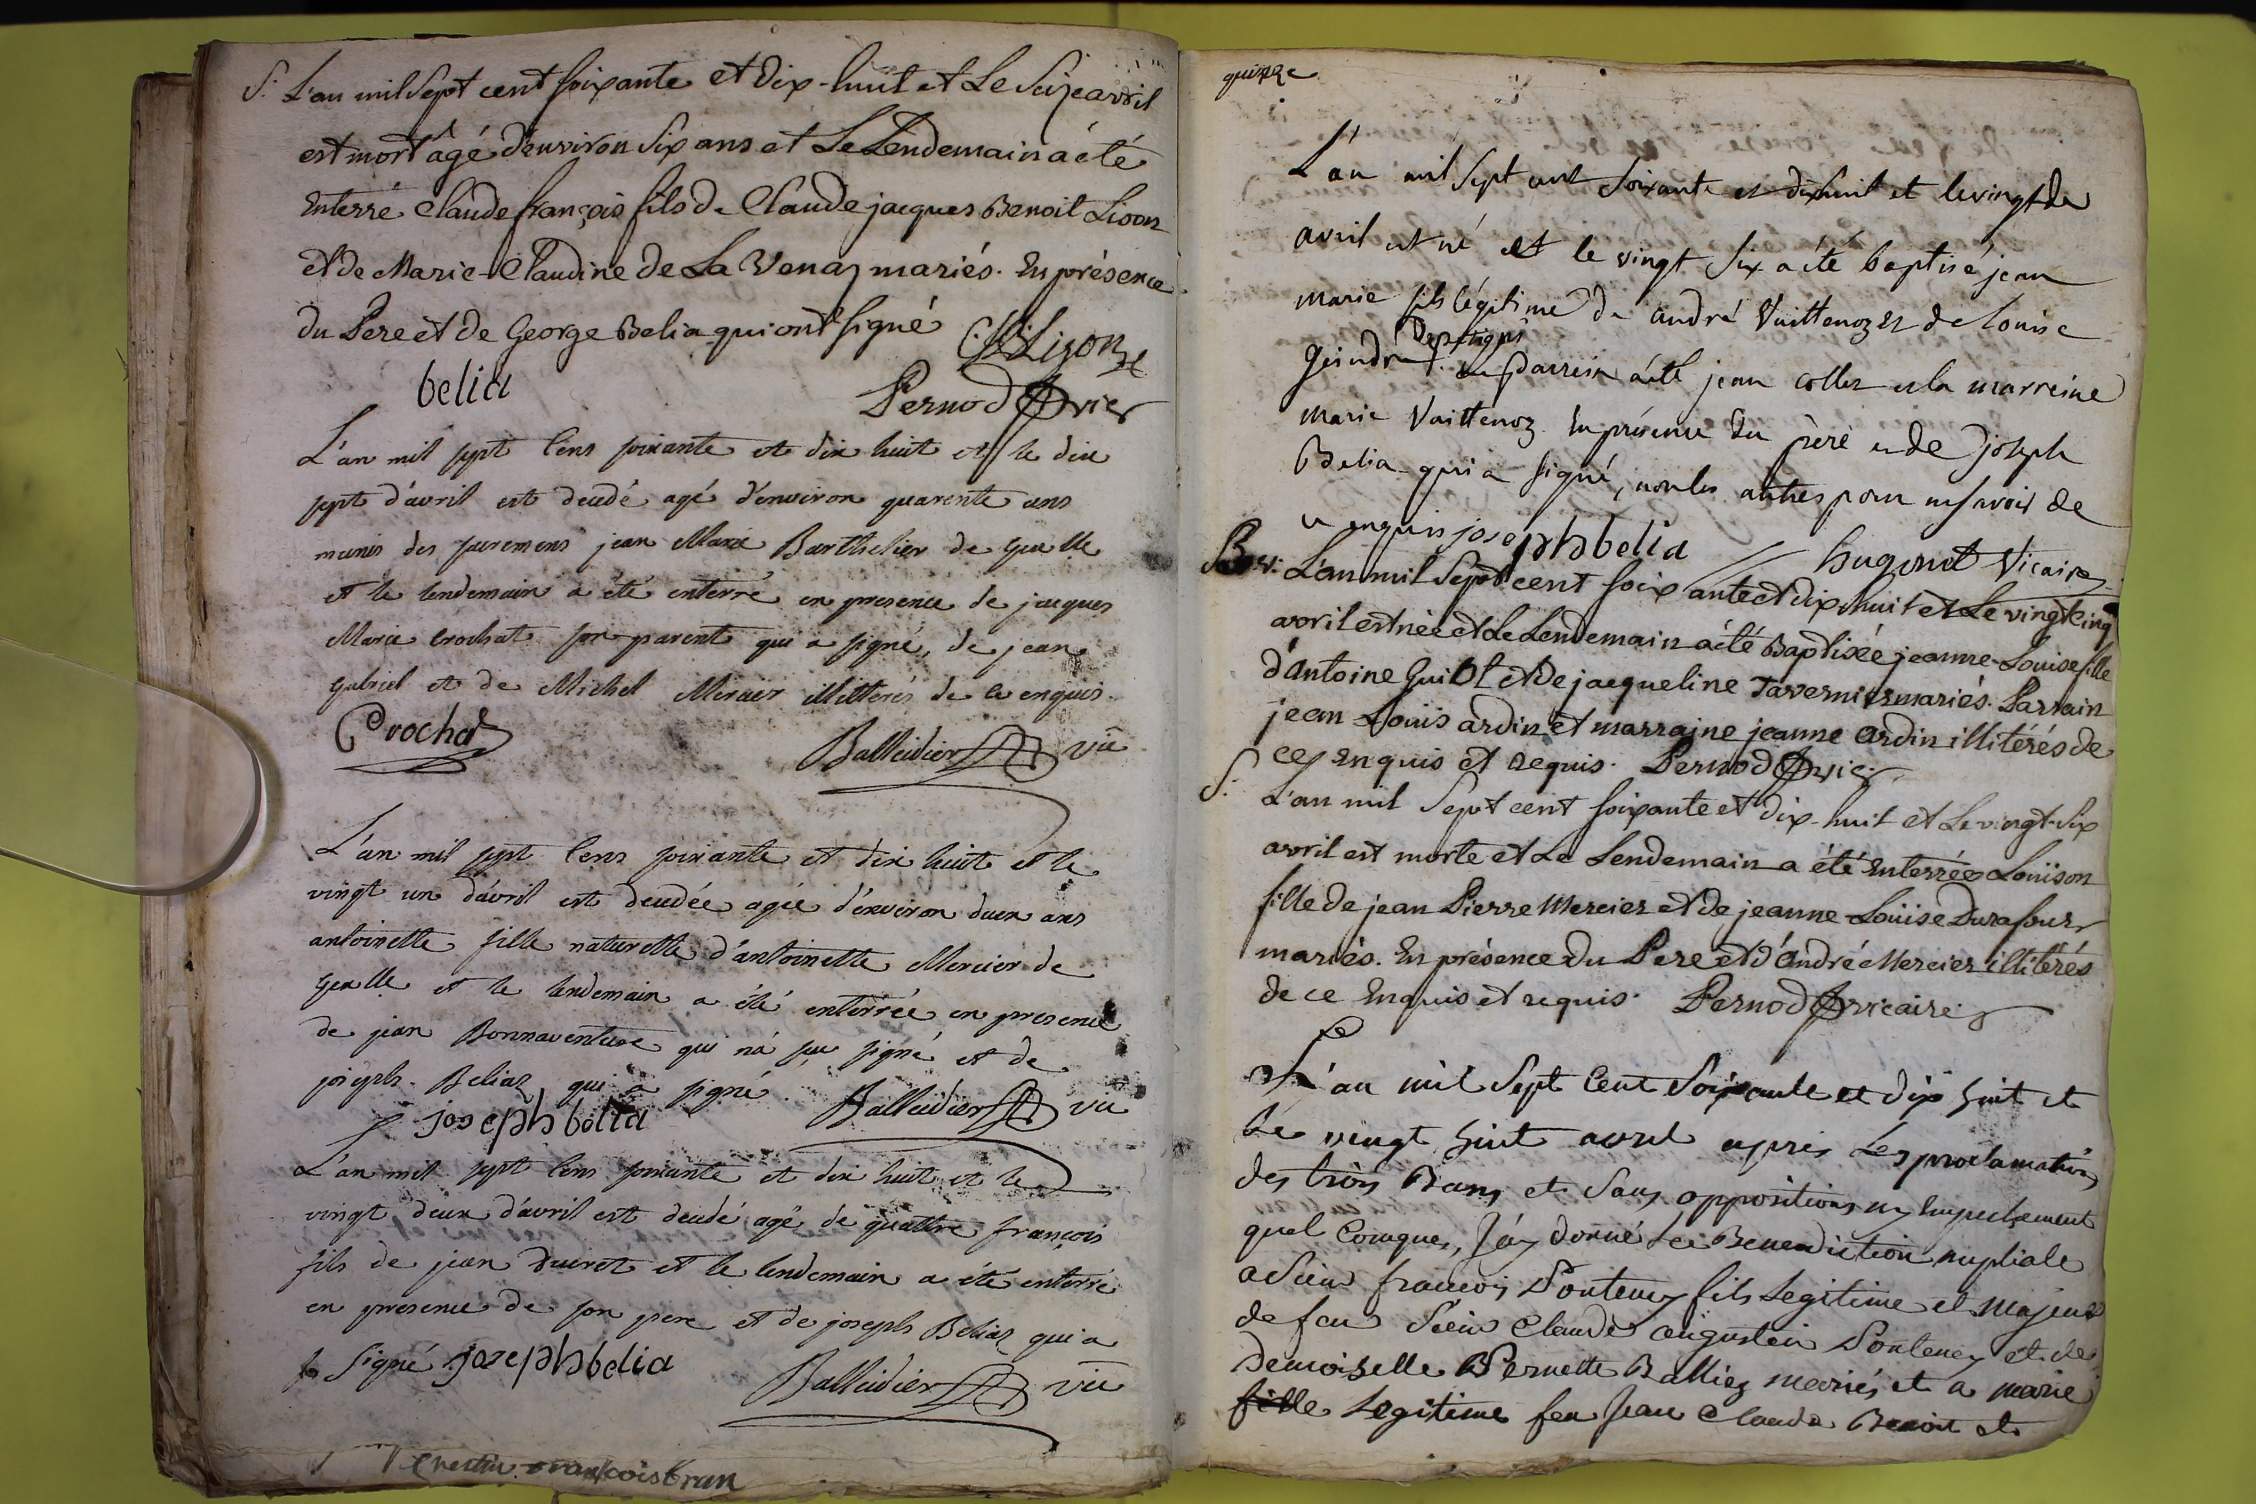 S. L'an mil Sept cent soixante et dix-huit et Le Seize avril
est mort âgé d'environ Six ans et Le Lendemain a été
Enterré Claude françois fils de Claude jacques Benoit Lison
et de Marie-Claudine de La Venaz mariés. En présence
du Pere et de George Belia qui ont signé C.J.B. Lizon
belia Pernod vier
L'an mil sept Cens soixante et dix huit et le dix
sept d'avril est decedé agé d'environ quarente ans
munis des sacremens jean Marie Barthelier de
et le lendemain a été enterré en presence de jacques
Marie Crochat son parent qui a signé, de jean
gabriel et de Michel Mercier illitterés de ce enquis.
Crochat Balleidier vic
L'an mil sept Cens soixante et dix huit et le
vingt un d'avril est decedée agée d'environ deux ans
antoinette fille naturelle d'antoinette Mercier de
et le lendemain a été enterrée en presence
de jean Bonnaventure qui n'a signé et de
joseph Beliaz qui a signé Balleidier vic
joseph belia
L'an mil sept Cens soixante et dix huit et le
vingt deux d'avril est decedé agé de quattre françois
fils de jean Duiret et le lendemain a été enterré
en presence de son pere et de joseph Beliaz qui a
signé joseph belia
Balleidier vic
françois brun
quinze
L'an mil Sept cent Soixante et dixhuit et le vingt de
avril est né et le vingt Six a été baptisé jean
marie fils légitime de andré Vuittenoz et de Louise
Geindre. Le parrein a été jean collet et la marreine
marie Vuittenoz. En présence du père et de joseph
Belia qui a signé, non les autres pour ne savoir de
ce enquis joseph belia hugonet Vicaire
L'an mil Sept cent soixante et dix-huit et Le vingt cinq
avril est née et Le Lendemain a été Baptisée jeanne-Louise fille
d'Antoine Guillot et de jacqueline Tavernier mariés. Parrain
jean Louis ardin et marraine jeanne ardin illitérés de
ce enquis et requis. Pernod vic.
S. L'an mil Sept cent soixante et dix-huit et Le vingt-Six
avril est morte et Le Lendemain a été Enterrée Louison
fille de jean Pierre Mercier et de jeanne-Louise Durafour
mariés. En présence du Pere et d'andré Mercier illitérés
de ce enquis et requis. Pernod vicaire
L'an mil Sept Cent Soixante et dix huit et
le vingt huit avril apres Les proclamations
des trois Bans et Sans oppositions ny Empechement
quel Conques, J'ay donné La Benediction nuptiale
a Sieur francois Ponteney fils Legitime et Majeur
de feu Sieur Claude augustin Ponteney et de
Demoiselle Pernette Balliez mariés et a marie
fille Legitime feu Jean Claude Benoit et